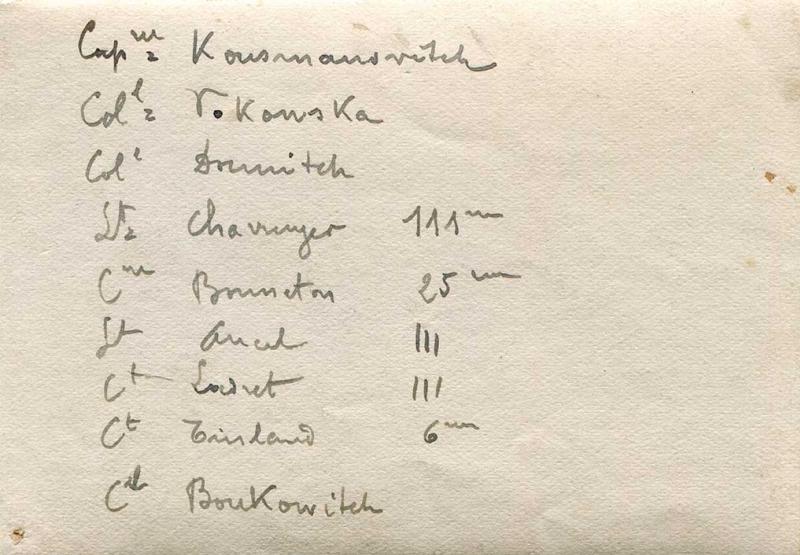 Cap ne Kousmanovitch
Col l Vokouska
Col l Dremitch
Lt Chavenger 111 me
C ne Bonneton 25 me
Lt Ancel 111
Ct Ladret 111
Ct 6 me
C el Boukowitch